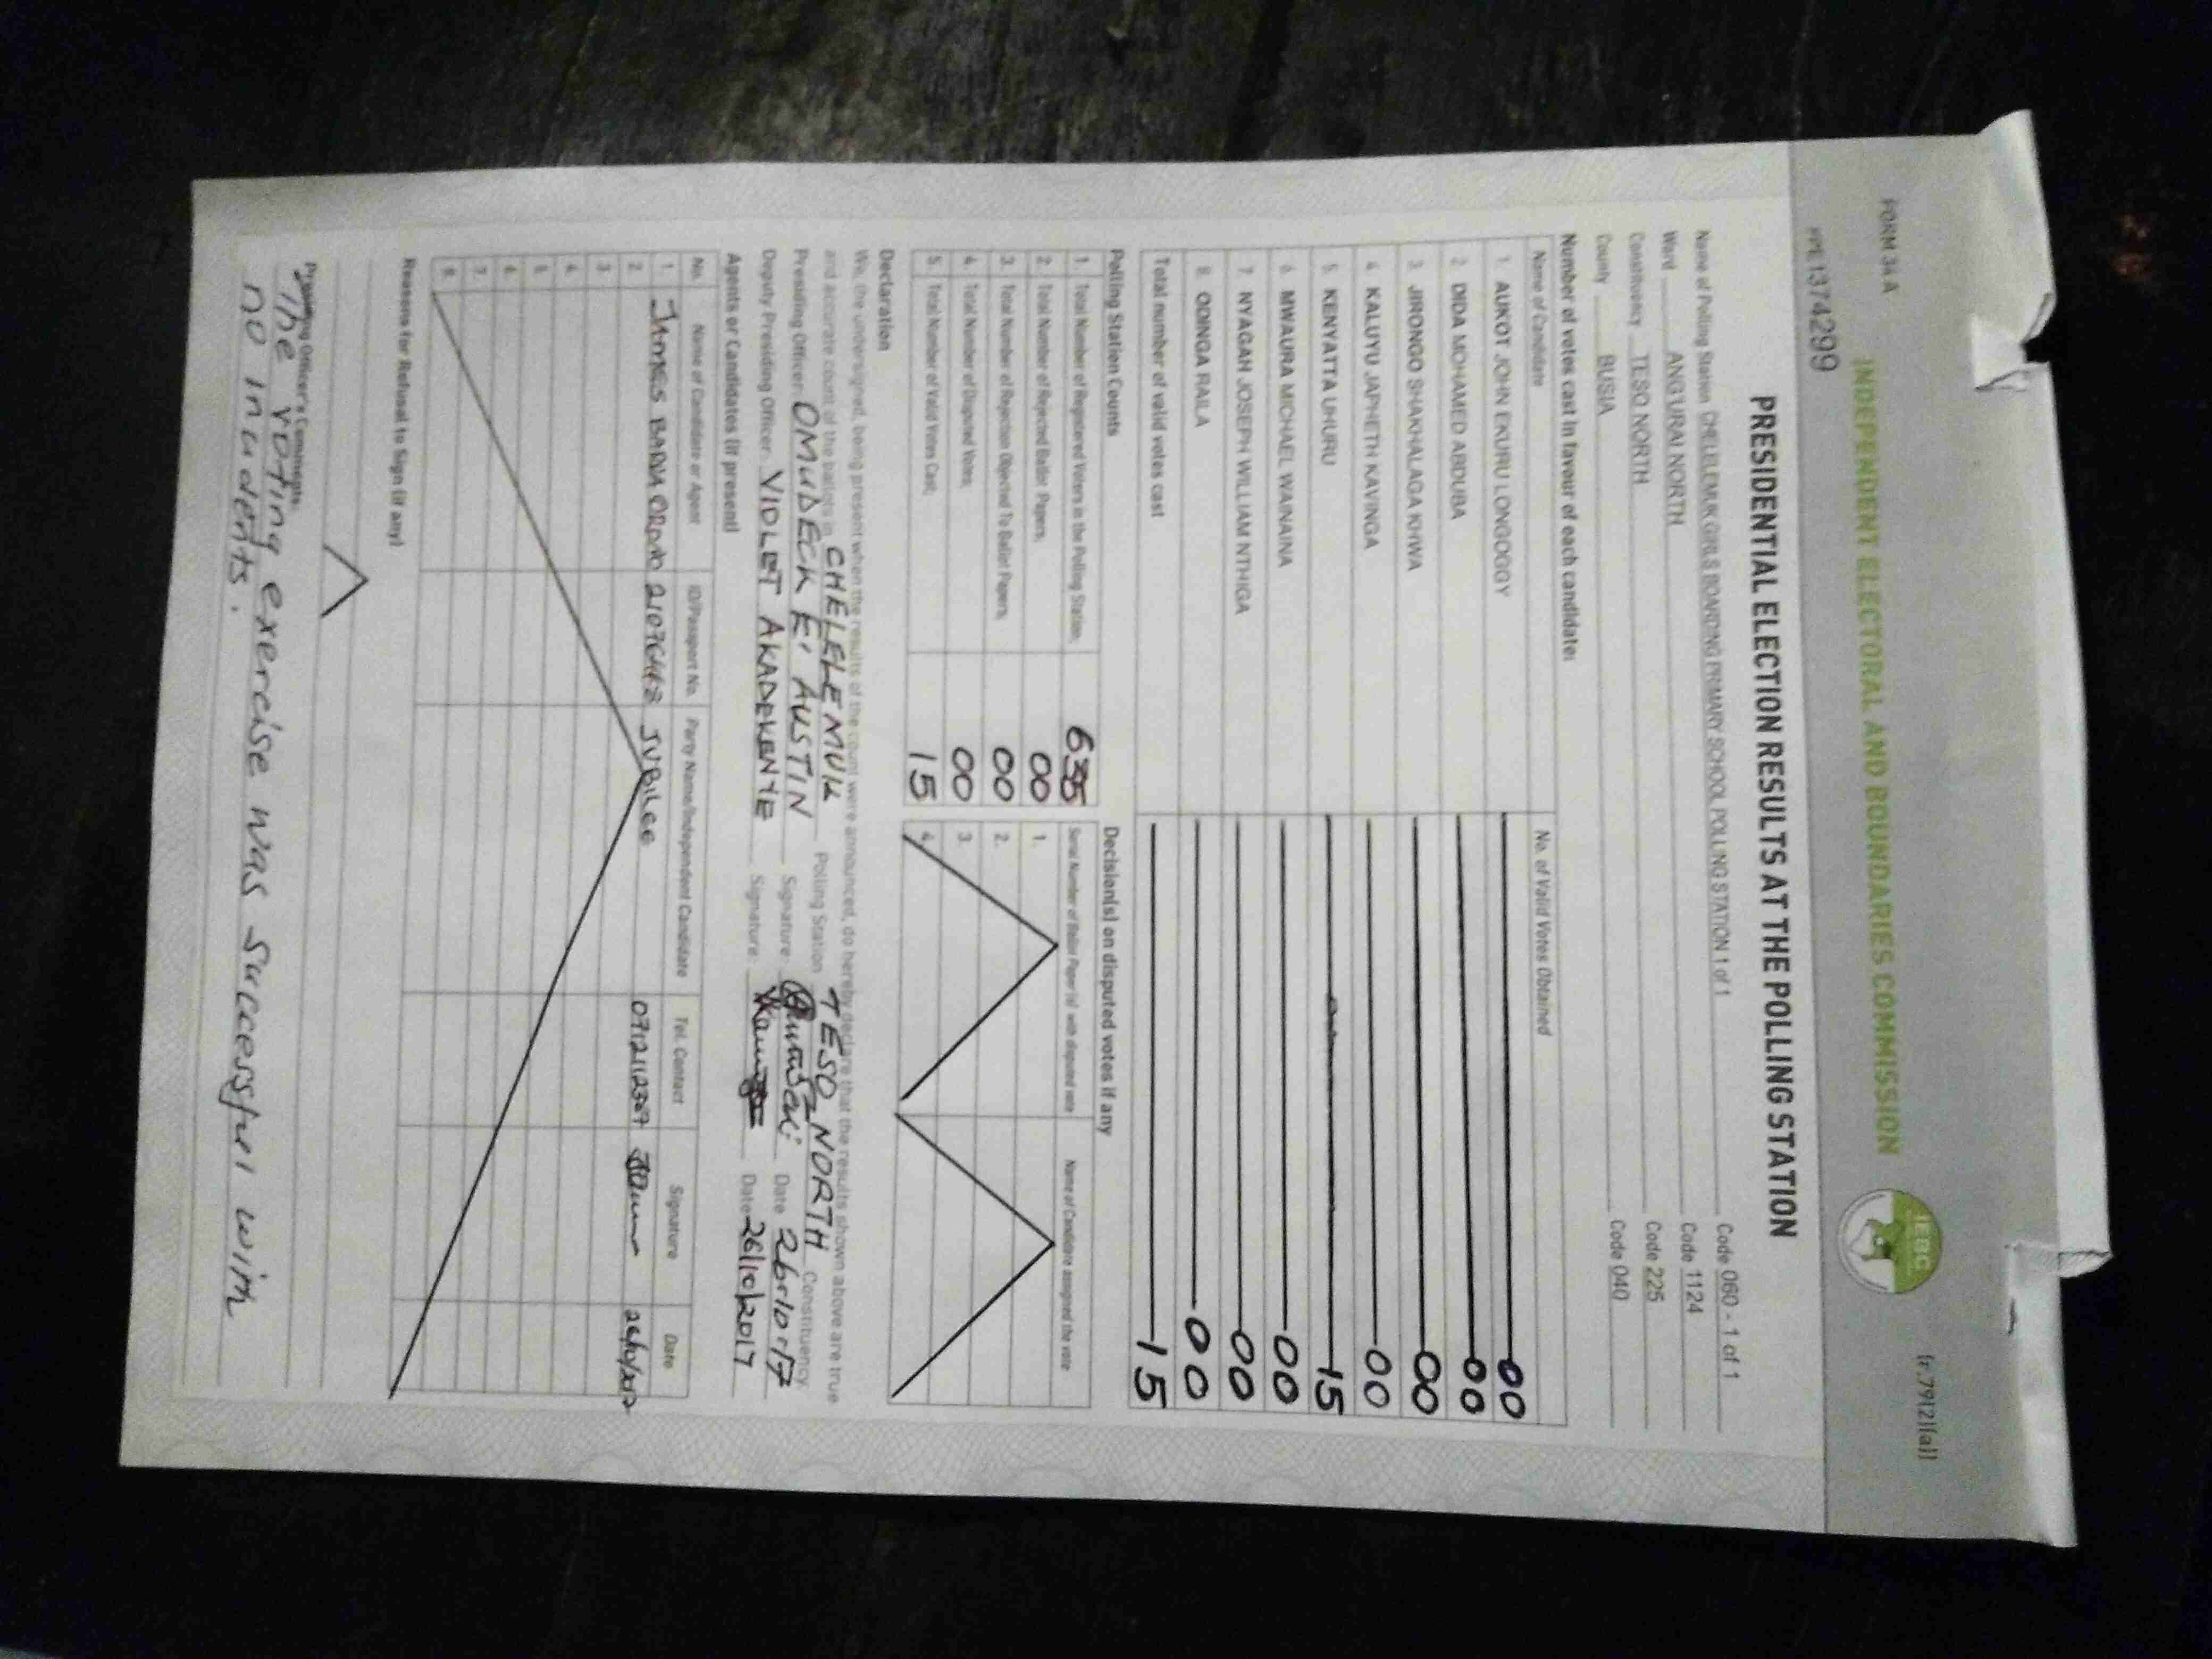 FORM 34 A
(r.79(2)(a))
INDEPENDENT ELECTORAL AND BOUNDARIES COMMISSION
IEBC
PRE 1374299
PRESIDENTIAL ELECTION RESULTS AT THE POLLING STATION
Name of Polling Station CHELELEMUK GIRLS BOARDING PRIMARY SCHOOL POLLING STATION 1 of 1 Code 060 - 1 of 1
Ward ANG'URAI NORTH Code 1124
Constituency TESO NORTH Code 225
County BUSIA Code 040
Number of votes cast in favour of each candidate:
Name of Candidate No. of Valid Votes Obtained
1. AUKOT JOHN EKURU LONGOGGY 00
2. DIDA MOHAMED ABDUBA 00
3. JIRONGO SHAKHALAGA KHWA 00
4. KALUYU JAPHETH KAVINGA 00
5. KENYATTA UHURU 15
6. MWAURA MICHAEL WAINAINA 00
7. NYAGAH JOSEPH WILLIAM NTHIGA 00
8. ODINGA RAILA 00
Total number of valid votes cast 15
Polling Station Counts
1. Total Number of Registered Voters in the Polling Station; 635
2. Total Number of Rejected Ballot Papers; 00
3. Total Number of Rejection Objected To Ballot Papers; 00
4. Total Number of Disputed Votes; 00
5. Total Number of Valid Votes Cast; 15
Decision(s) on disputed votes if any
Serial Number of Ballot Paper(s) with disputed vote Name of Candidate assigned the vote
1.
2.
3.
4.
Declaration
We, the undersigned, being present when the results of the count were announced, do hereby declare that the results shown above are true
and accurate count of the ballots in CHELELEMUK Polling Station TESO NORTH Constituency.
Presiding Officer: OMUDECK E. AUSTIN Signature Date 26-10-17
Deputy Presiding Officer: VIOLET AKADEKENTE Signature Date 26/10/2017
Agents or Candidates (if present)
No. Name of Candidate or Agent ID/Passport No. Party Name/Independent Candidate Tel. Contact Signature Date
1. JAMES JUBILEE 26/10/2017
2.
3.
4.
5.
6.
7.
8.
Reasons for Refusal to Sign (if any)
Presiding Officer's Comments:
The voting exercise was successful with
no incidents.